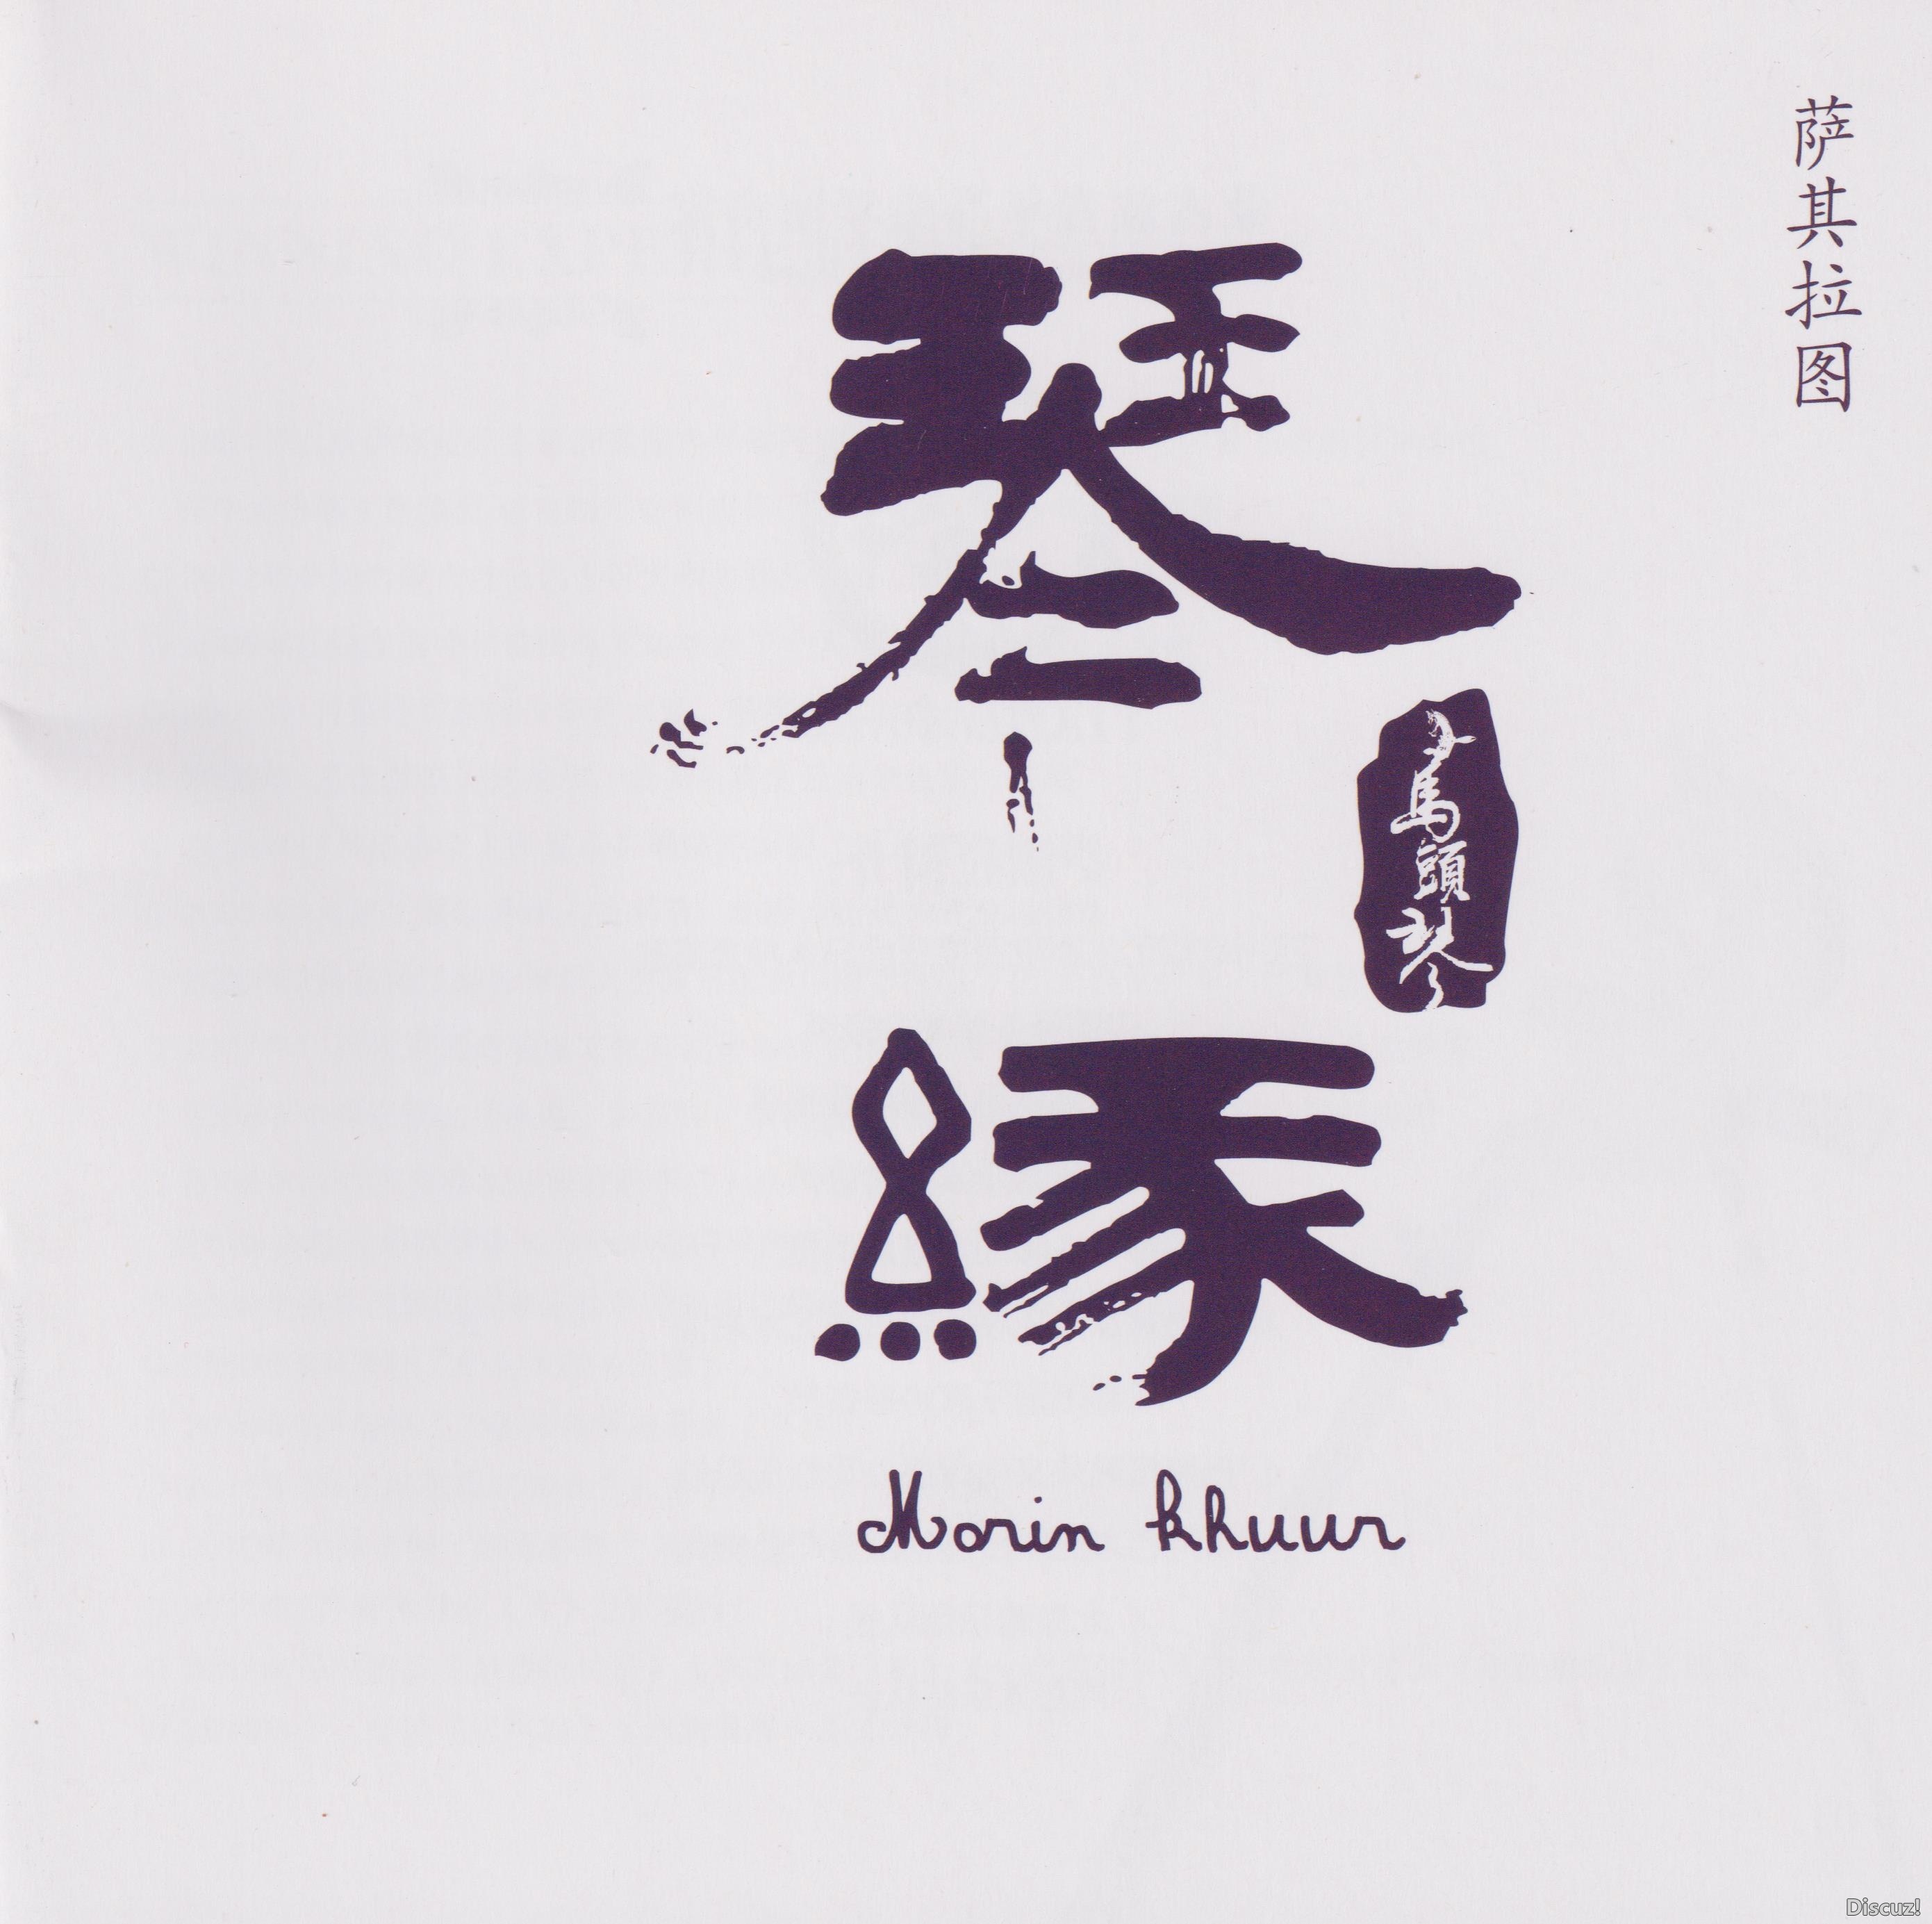 萨其拉图
琴
緣
馬頭琴
Morin khuur
Discuz!